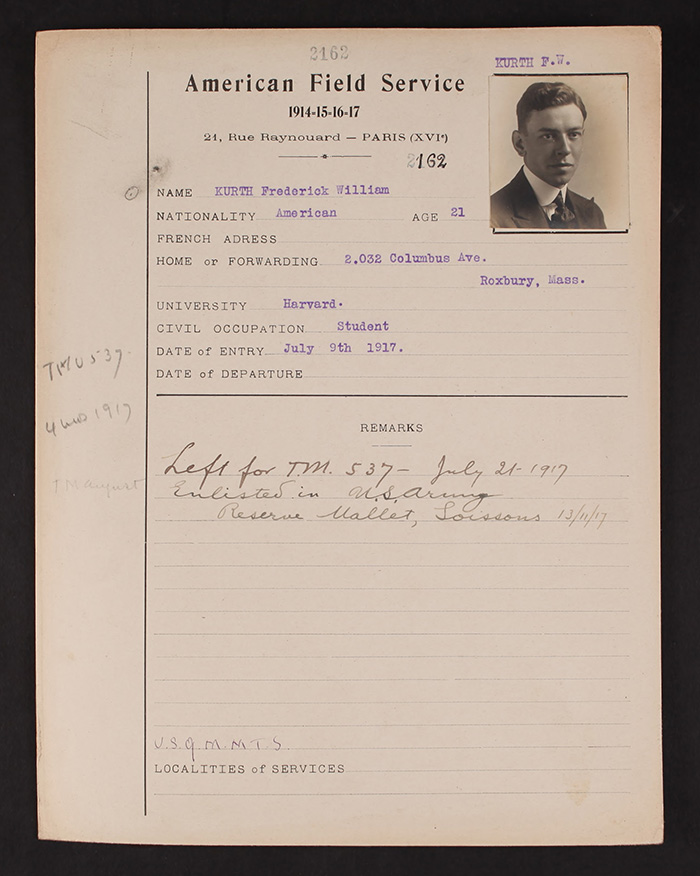 2162
KURTH F.W.
American Field Service
1914-15-16-17
21, Rue Raynouard — PARIS (XVIe)
2162
NAME KURTH Frederick William
NATIONALITY American AGE 21
FRENCH ADRESS
HOME or FORWARDING 2.032 Columbus Ave.
Roxbury, Mass.
UNIVERSITY Harvard.
CIVIL OCCUPATION Student
DATE of ENTRY July 9th 1917.
DATE of DEPARTURE
TMU 537
4 mos 1917
TM August
REMARKS
Left for T.M. 537 - July 21-1917
Enlisted in U.S. Army
Reserve Mallet, Soissons 13/11/17
U.S.Q.M.M.T.S.
LOCALITIES of SERVICES